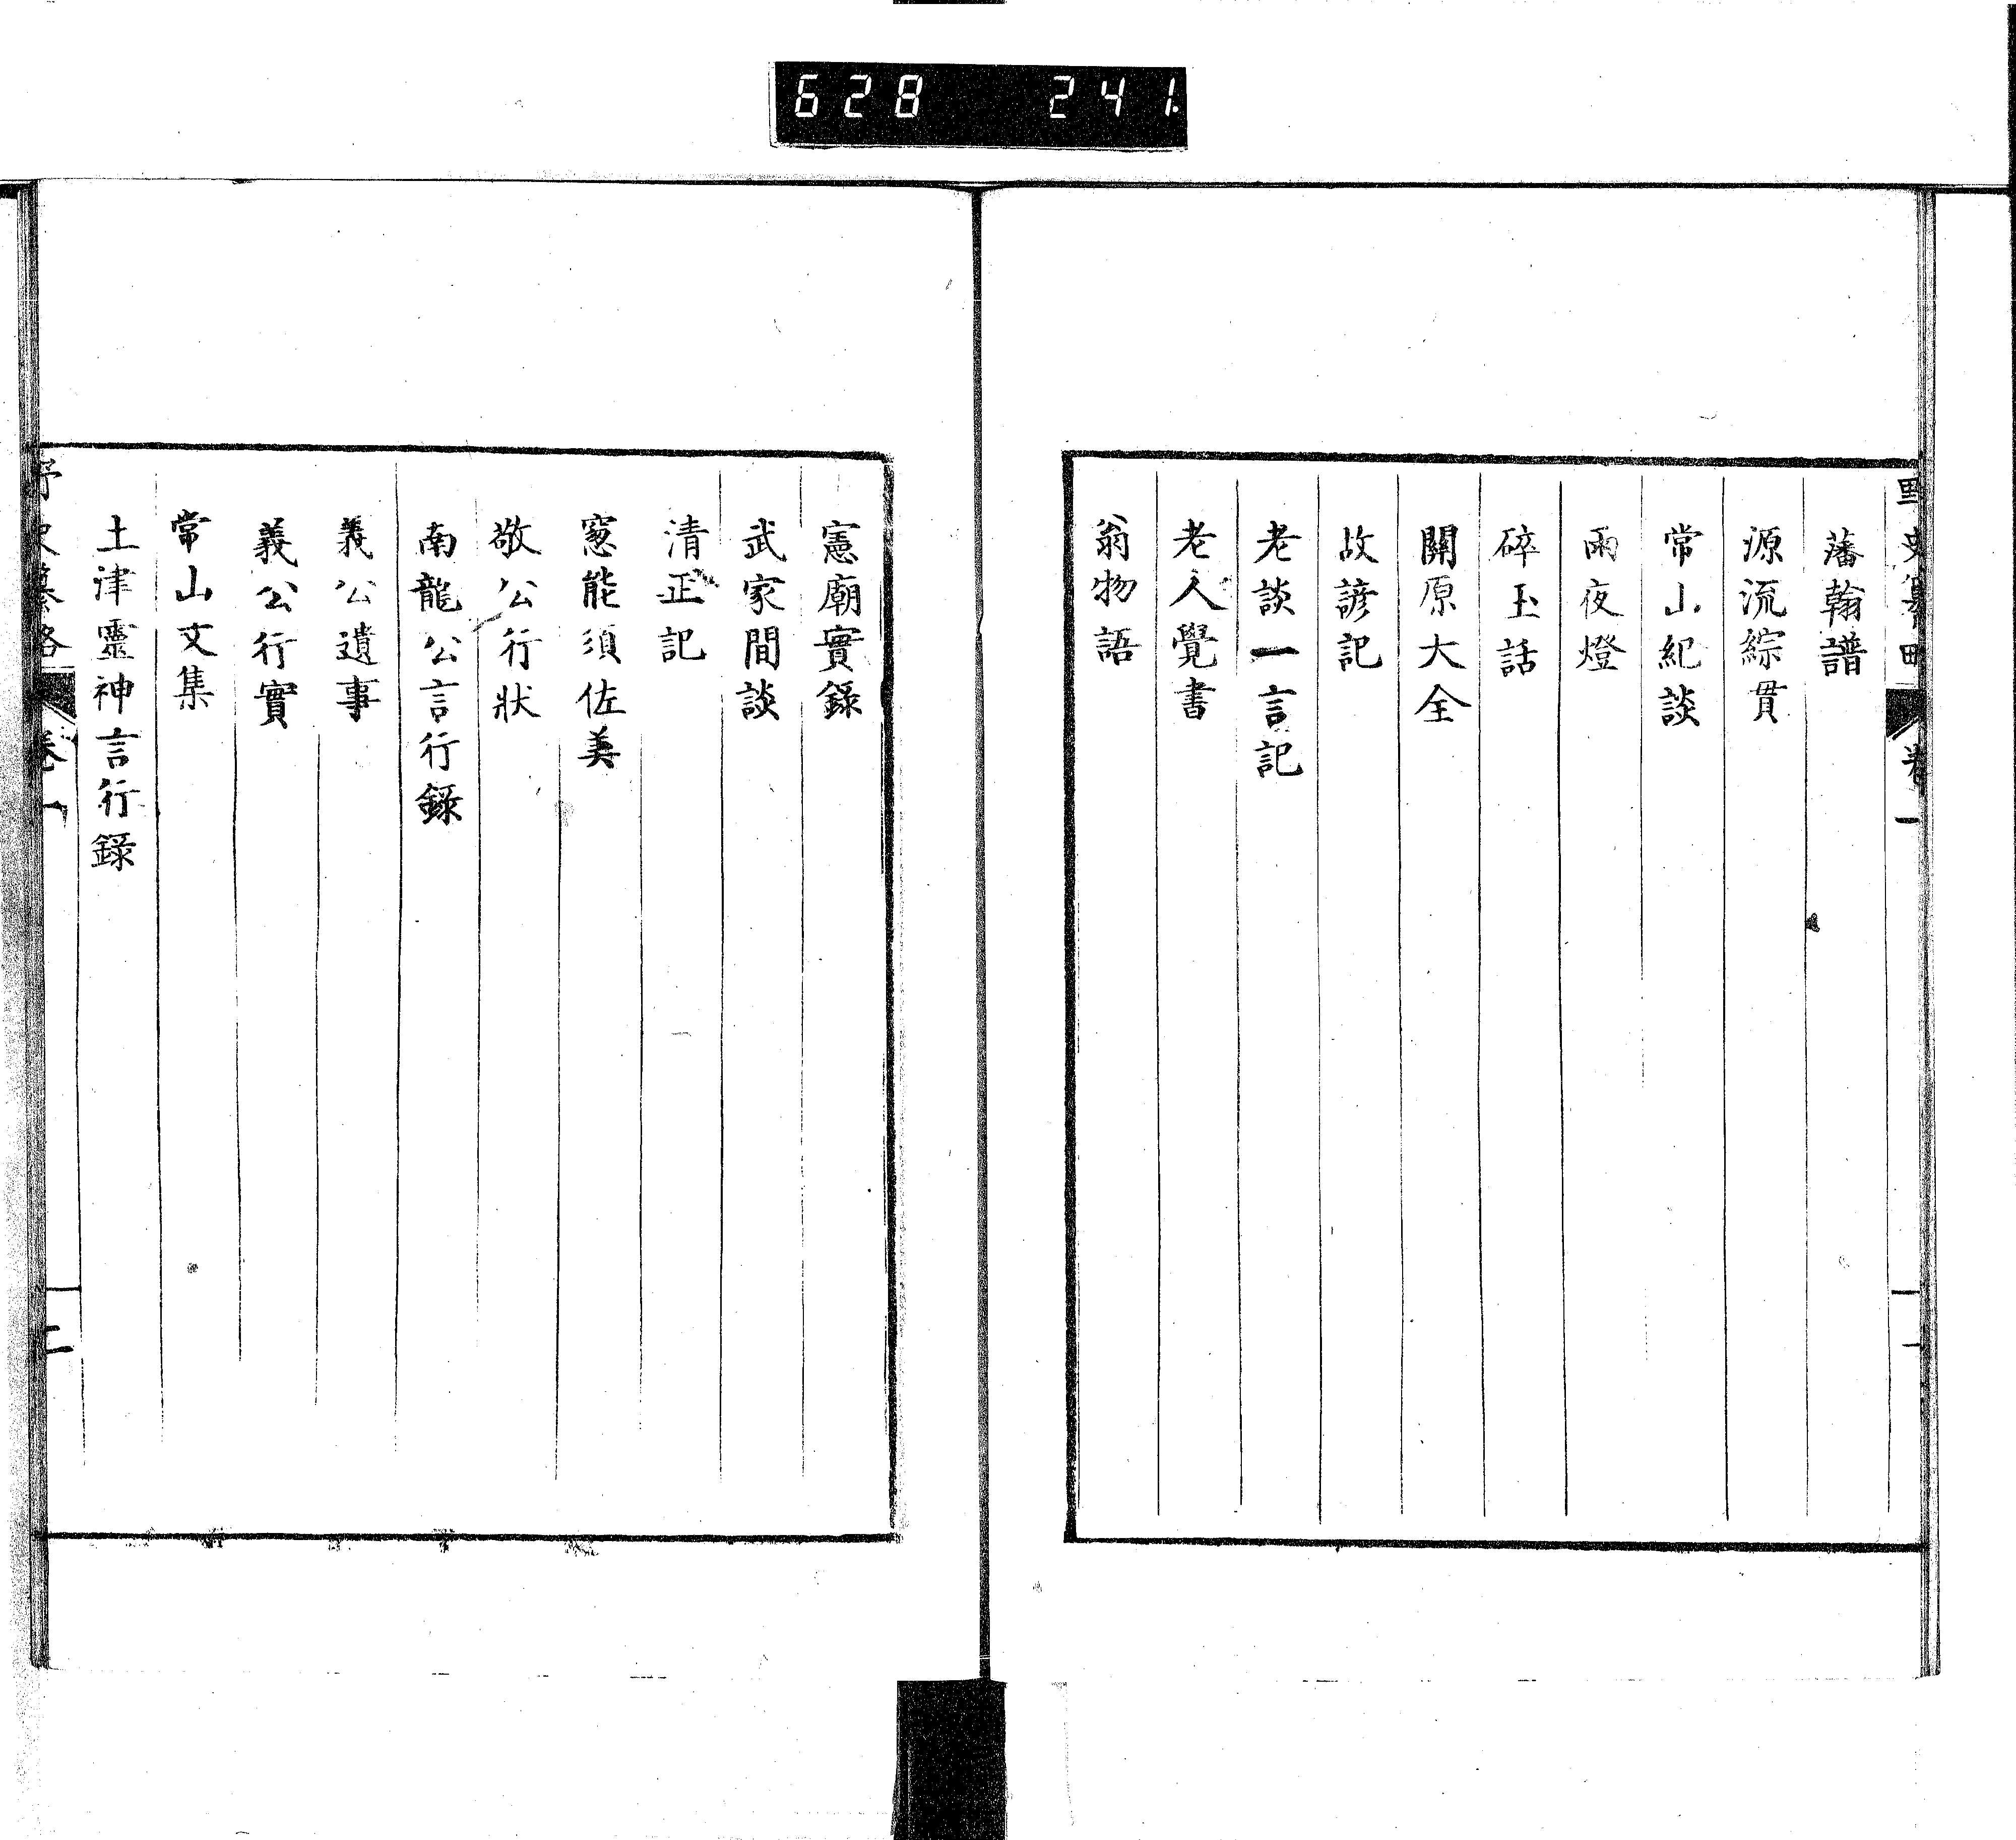 628 241.
藩翰譜
源流綜貫
常山紀談
雨夜燈
碎玉話
關原大全
故諺記
老談一言記
老人覺書
翁物語
憲廟實錄
武家閒談
清正記
窻能須佐美
敬公行狀
南龍公言行錄
義公遺事
義公行實
常山文集
土津靈神言行錄
卷一
二